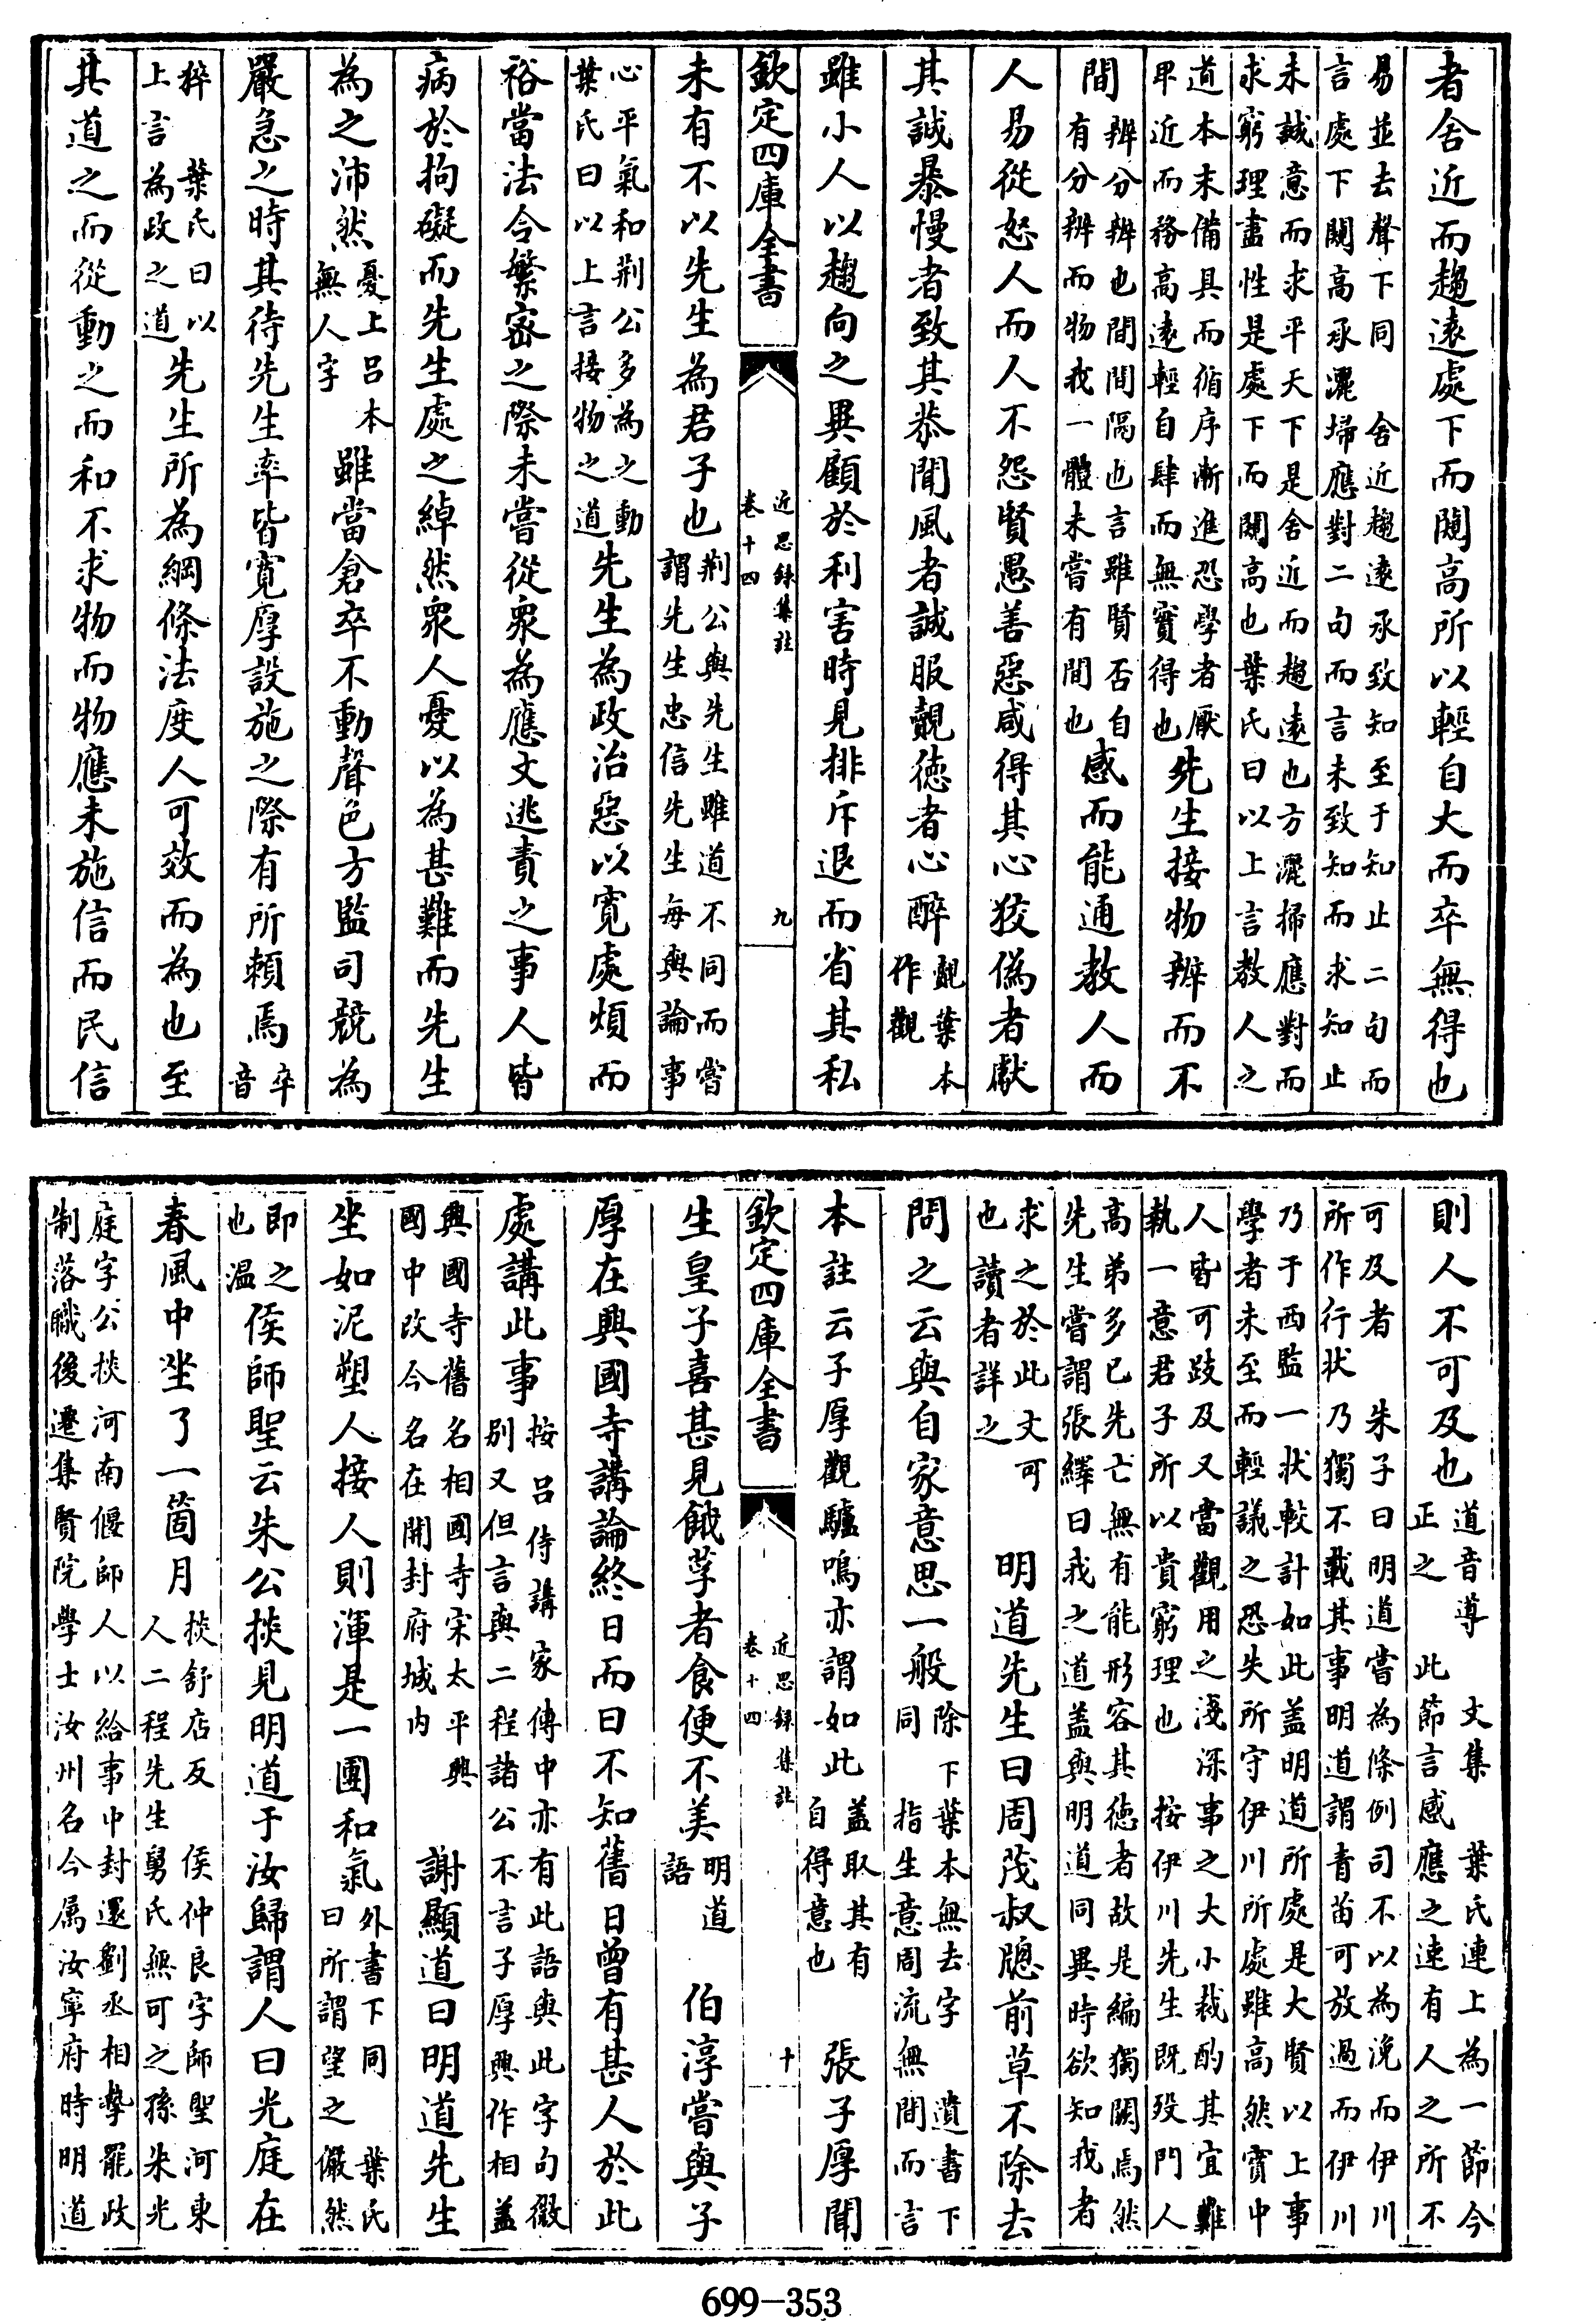 者舍近而趨逺處下而闚高所以輕自大而卒無得也
易並去聲下同　舍近趨逺承致知至于知止二句而
言處下闚高承灑埽應對二句而言未致知而求知止
未誠意而求平天下是舍近而趨逺也方灑掃應對而
求窮理盡性是處下而闚高也葉氏曰以上言教人之
道本末備具而循序漸進恐學者厭
卑近而務高逺輕自肆而無實得也
先生接物辨而不
間
辨分辨也間間隔也言雖賢否自
有分辨而物我一體未嘗有間也
感而能通教人而
人易從怒人而人不怨賢愚善惡咸得其心狡偽者獻
其誠暴慢者致其恭聞風者誠服覿徳者心醉
覿葉本
作觀
雖小人以趨向之異顧於利害時見排斥退而省其私
欽定四庫全書
近思錄集註
卷十四
九
未有不以先生為君子也
荆公與先生雖道不同而嘗
謂先生忠信先生每與論事
心平氣和荆公多為之動
葉氏曰以上言接物之道
先生為政治惡以寛處煩而
裕當法令繁宻之際未嘗從衆為應文逃責之事人皆
病於拘礙而先生處之綽然衆人憂以為甚難而先生
為之沛然
憂上吕本
無人字
雖當倉卒不動聲色方監司競為
嚴急之時其待先生率皆寛厚設施之際有所頼焉
卒音
猝　葉氏曰以
上言為政之道
先生所為綱條法度人可效而為也至
其道之而從動之而和不求物而物應未施信而民信
則人不可及也
道音導　文集　葉氏連上為一節今
正之　此節言感應之速有人之所不
可及者　朱子曰明道嘗為條例司不以為浼而伊川
所作行状乃獨不載其事明道謂青苗可放過而伊川
乃于西監一状較計如此盖明道所處是大賢以上事
學者未至而輕議之恐失所守伊川所處雖高然實中
人皆可跂及又當觀用之淺深事之大小裁酌其宜難
執一意君子所以貴窮理也　按伊川先生既殁門人
高弟多已先亡無有能形容其徳者故是編獨闕焉然
先生嘗謂張繹曰我之道盖與明道同異時欲知我者
求之於此文可
也讀者詳之
明道先生曰周茂叔牕前草不除去
問之云與自家意思一般
除下葉本無去字　遺書下
同　指生意周流無間而言
本註云子厚觀驢鳴亦謂如此
盖取其有
自得意也
張子厚聞
欽定四庫全書
近思錄集註
卷十四
十
生皇子喜甚見餓莩者食便不美
明道
語
伯淳嘗與子
厚在興國寺講論終日而曰不知舊日曾有甚人於此
處講此事
按吕侍講家傳中亦有此語與此字句微
别又但言與二程諸公不言子厚興作相盖
興國寺舊名相國寺宋太平興
國中改今名在開封府城内
謝顯道曰明道先生
坐如泥塑人接人則渾是一團和氣
外書下同　葉氏
曰所謂望之儼然
即之
也温
侯師聖云朱公掞見明道于汝歸謂人曰光庭在
春風中坐了一箇月
掞舒店反　侯仲良字師聖河東
人二程先生舅氏無可之孫朱光
庭字公掞河南偃師人以給事中封還劉丞相摯罷政
制落職後遷集賢院學士汝州名今属汝寧府時明道
699-353